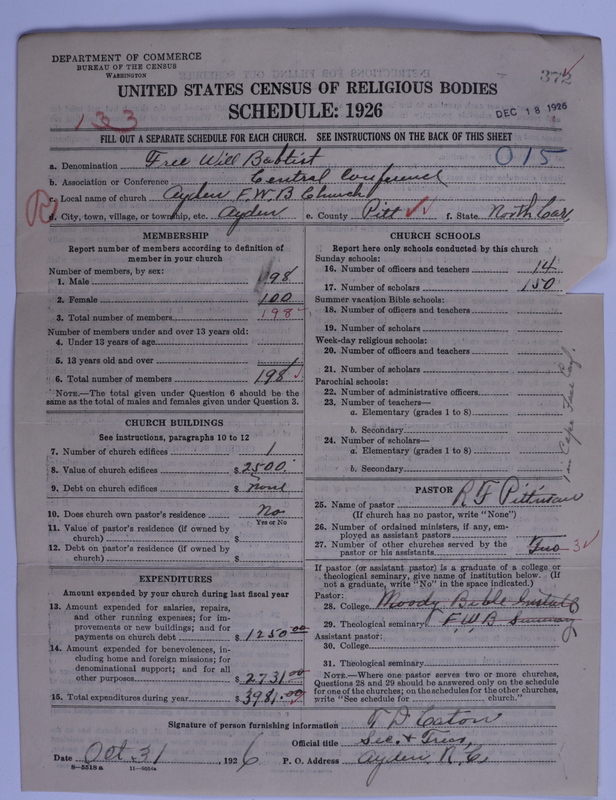 DEPARTMENT OF COMMERCE
BUREAU OF THE CENSUS
WASHINGTON
372
UNITED STATES CENSUS OF RELIGIOUS BODIES
SCHEDULE: 1926
DEC 18 1926
133
FILL OUT A SEPARATE SCHEDULE FOR EACH CHURCH. SEE INSTRUCTIONS ON THE BACK OF THIS SHEET
015
a. Denomination Free Will Baptist
b. Association or Conference Central Conference
c. Local name of church Ayden F.W.B Church
d. City, town, village, or township, etc. Ayden e. County Pitt f. State North Car,
MEMBERSHIP
Report number of members according to definition of
member in your church
Number of members, by sex:
1. Male 98
2. Female 100
3. Total number of members 198
Number of members under and over 13 years old:
4. Under 13 years of age
5. 13 years old and over
6. Total number of members 198
NOTE.—The total given under Question 6 should be
same as the total of males and females given under Question 3.
CHURCH BUILDINGS
See instructions, paragraphs 10 to 12
7. Number of church edifices 1
8. Value of church edifices $ 2500.
9. Debt on church edifices $ None
10. Does church own pastor's residence? No
Yes or No
11. Value of pastor's residence (if owned by
church) $
12. Debt on pastor's residence (if owned by
church) $
EXPENDITURES
Amount expended by your church during last fiscal year
13. Amount expended for salaries, repairs,
and other running expenses; for im-
provements or new buildings; and for
payments on church debt $ 1250.00
14. Amount expended for benevolences, in-
cluding home and foreign missions; for
denominational support; and for all
other purposes $ 2731.00
15. Total expenditures during year $ 3981.00
CHURCH SCHOOLS
Report here only schools conducted by this church
Sunday schools:
16. Number of officers and teachers 14
17. Number of scholars 150
Summer vacation Bible schools:
18. Number of officers and teachers
19. Number of scholars
Week-day religious schools:
20. Number of officers and teachers
21. Number of scholars
Parochial schools:
22. Number of administrative officers
23. Number of teachers—
a. Elementary (grades 1 to 8)
b. Secondary
24. Number of scholars—
a. Elementary (grades 1 to 8)
b. Secondary
PASTOR
25. Name of pastor R F Pittman
(If church has no pastor, write "None")
26. Number of ordained ministers, if any, em-
ployed as assistant pastors
27. Number of other churches served by the
pastor or his assistants Two 3
If pastor (or assistant pastor) is a graduate of a college or
theological seminary, give name of institution below. (If
not a graduate, write "No" in the space indicated.)
Pastor:
28. College Moody Bible Institute
29. Theological seminary F.W.B Seminary
Assistant pastor:
30. College
31. Theological seminary
NOTE.—Where one pastor serves two or more churches,
Questions 28 and 29 should be answered only on the schedule
for one of the churches; on the schedules for the other churches,
write "See schedule for church."
Signature of person furnishing information
Official title Sec. & Treas,
Date Oct 31, 1926 P. O. Address Ayden N.C.
8—5518a 11—9054a